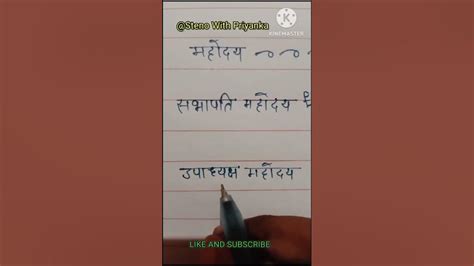 @Steno With Priyanka
KINEMASTER
महोदय
सभापति महोदय
उपाध्यक्ष महोदय
LIKE AND SUBSCRIBE